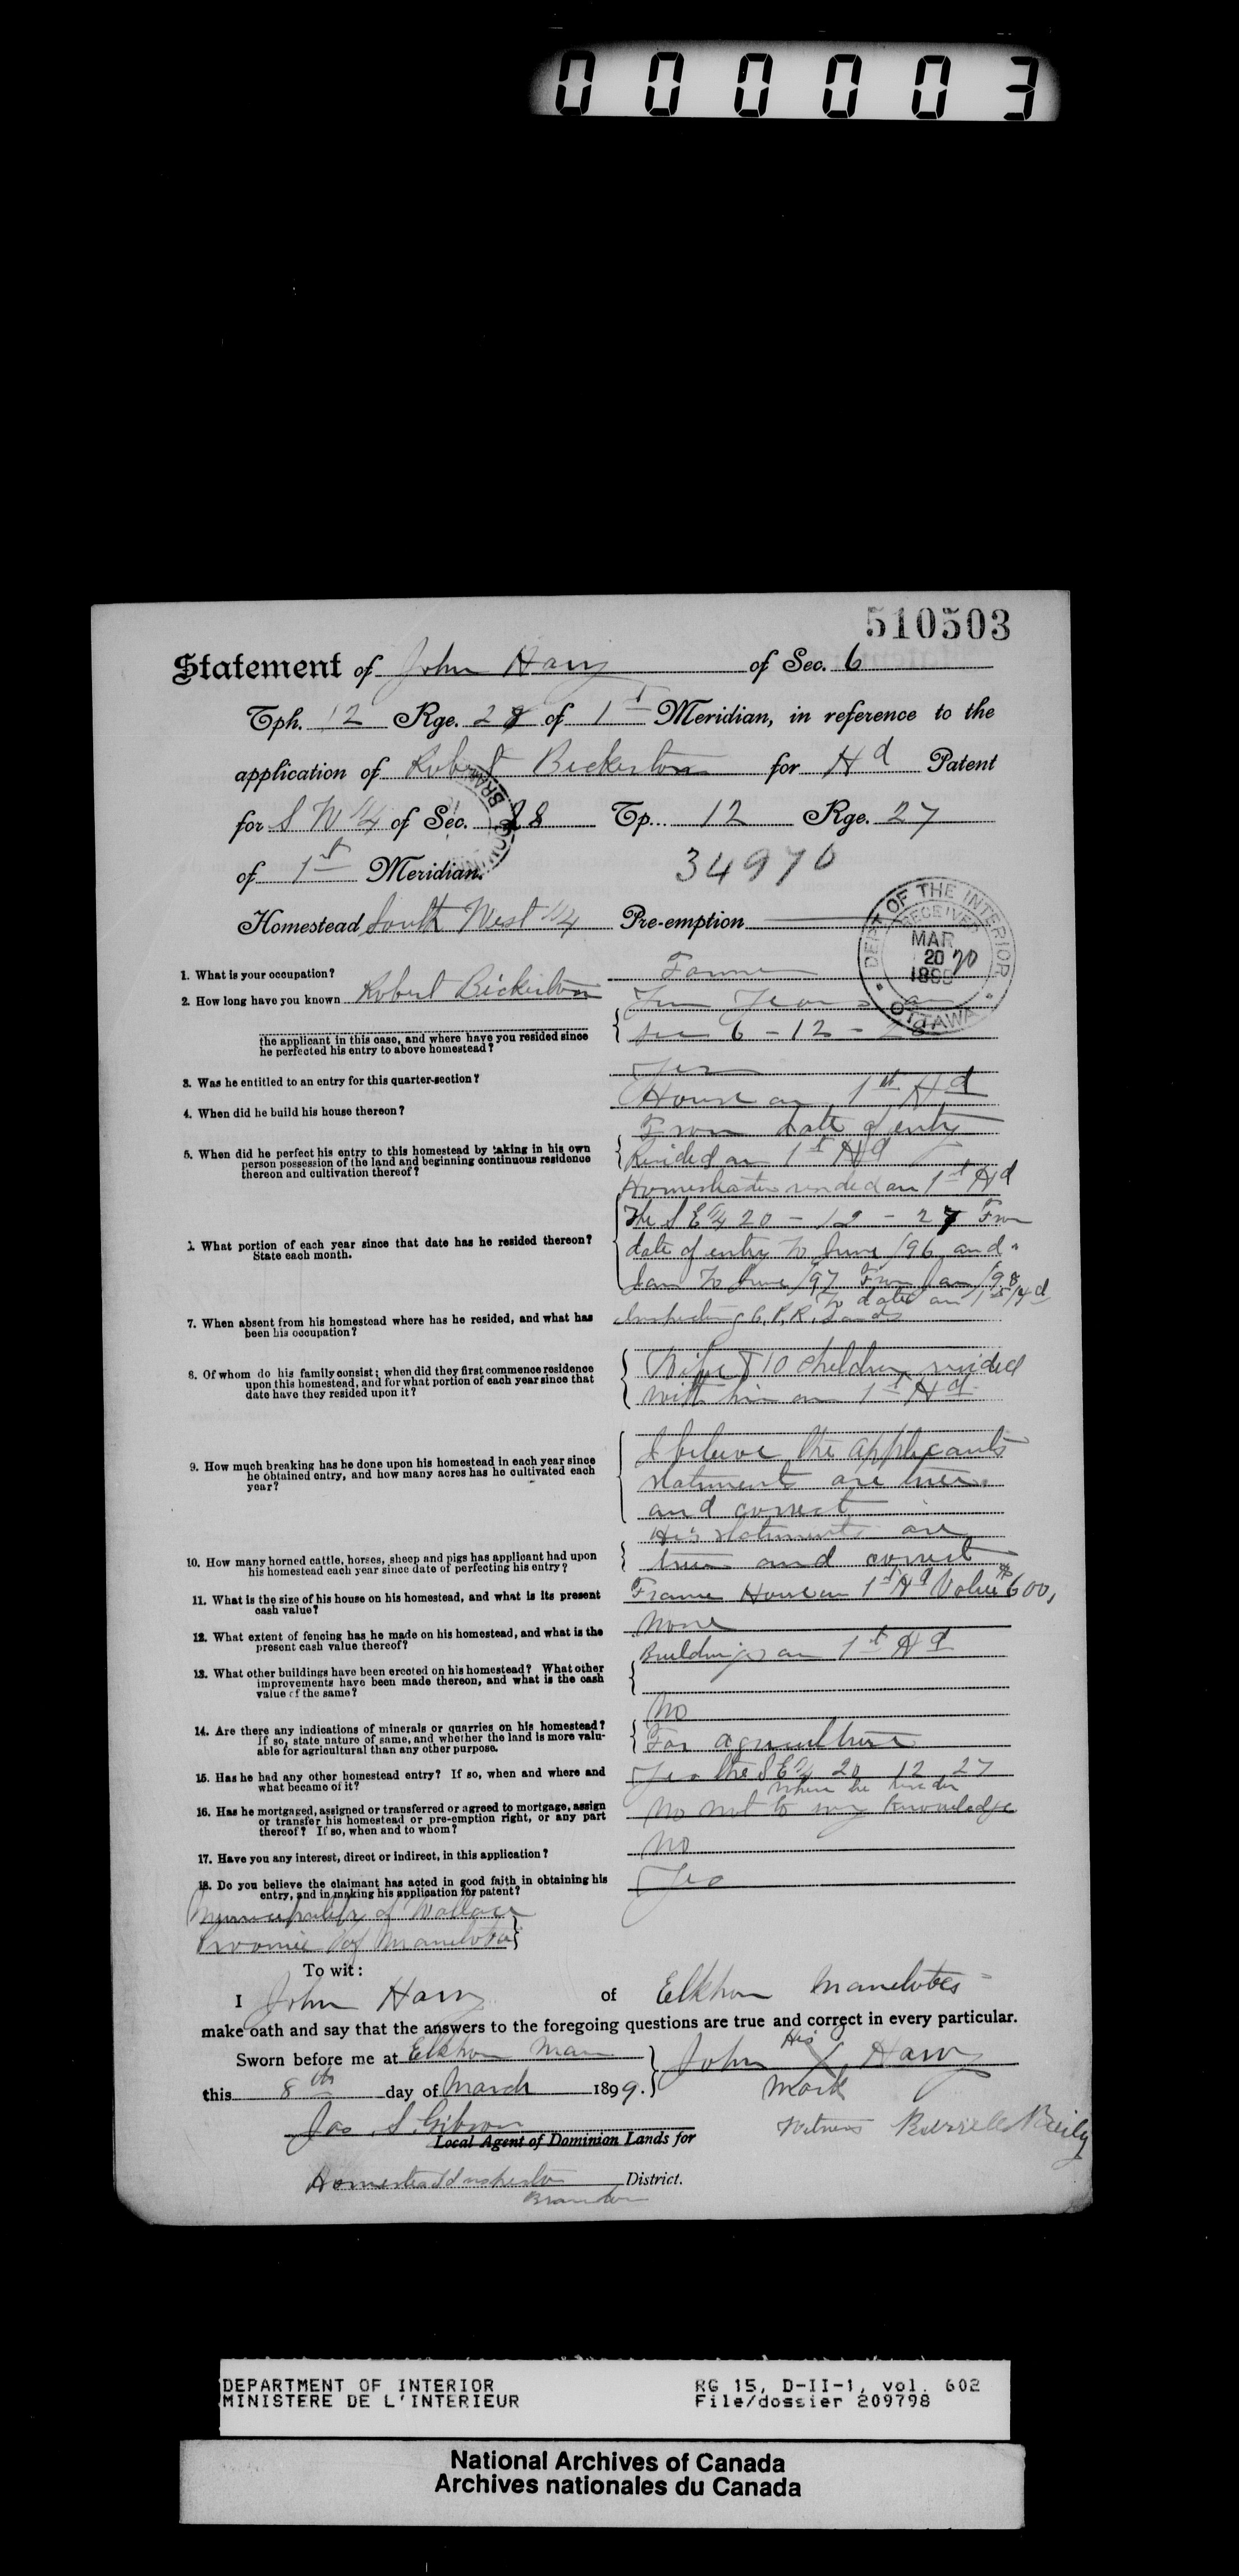 000003
510503
Statement of John Hary of Sec. 6
Tph. 12 Rge. 28 of 1st Meridian, in reference to the
application of Robert Bickerton for Hd Patent
for S W 1/4 of Sec. 28 Tp. 12 Rge. 27
of 1st Meridian. 34976
Homestead South West 1/4 Pre-emption
DEPT OF THE INTERIOR
RECEIVED
MAR
20 20
1899
OTTAWA
1. What is your occupation? Farmer
2. How long have you known Robert Bickerton Ten Years on
the applicant in this case, and where have you resided since
he perfected his entry to above homestead? sec 6 - 12 - 28
3. Was he entitled to an entry for this quarter-section? Yes
4. When did he build his house thereon? House on 1st Hd
From date of entry
5. When did he perfect his entry to this homestead by taking in his own
person possession of the land and beginning continuous residence
thereon and cultivation thereof? Resided on 1st Hd
Homesteader resided on 1st Hd
The S E 1/4 20 - 12 - 27 From
What portion of each year since that date has he resided thereon?
State each month. date of entry to June /96 and
Jan to June /97 From Jan /98
to date on 1st Hd
7. When absent from his homestead where has he resided, and what has
been his occupation? Inspecting C. P. R. Lands
8. Of whom do his family consist; when did they first commence residence
upon this homestead, and for what portion of each year since that
date have they resided upon it? Wife & 10 children resided
with him on 1st Hd.
9. How much breaking has he done upon his homestead in each year since
he obtained entry, and how many acres has he cultivated each
year? I believe the applicants
statements are true
and correct
His statements are
10. How many horned cattle, horses, sheep and pigs has applicant had upon
his homestead each year since date of perfecting his entry? true and correct
11. What is the size of his house on his homestead, and what is its present
cash value? Frame House on 1st Hd Value $600,
12. What extent of fencing has he made on his homestead, and what is the
present cash value thereof? None
13. What other buildings have been erected on his homestead? What other
improvements have been made thereon, and what is the cash
value of the same? Buildings on 1st Hd
14. Are there any indications of minerals or quarries on his homestead?
If so, state nature of same, and whether the land is more valu-
able for agricultural than any other purpose. No
For agriculture
15. Has he had any other homestead entry? If so, when and where and
what became of it? Yes the S E 1/4 20 12 27
where he resides
16. Has he mortgaged, assigned or transferred or agreed to mortgage, assign
or transfer his homestead or pre-emption right, or any part
thereof? If so, when and to whom? No not to my knowledge
17. Have you any interest, direct or indirect, in this application? No
18. Do you believe the claimant has acted in good faith in obtaining his
entry, and in making his application for patent? Yes
Municipality of Wallace
Province of Manitoba
To wit:
I John Hary of Elkhorn Manitoba
make oath and say that the answers to the foregoing questions are true and correct in every particular.
Sworn before me at Elkhorn Man
this 8th day of March 1899.
John His X Hary
mark
Jas. S. Gibson
Witness
Local Agent of Dominion Lands for
Homestead Inspector District.
Brandon
DEPARTMENT OF INTERIOR
MINISTERE DE L'INTERIEUR
RG 15, D-II-1, vol. 602
File/dossier 209798
National Archives of Canada
Archives nationales du Canada